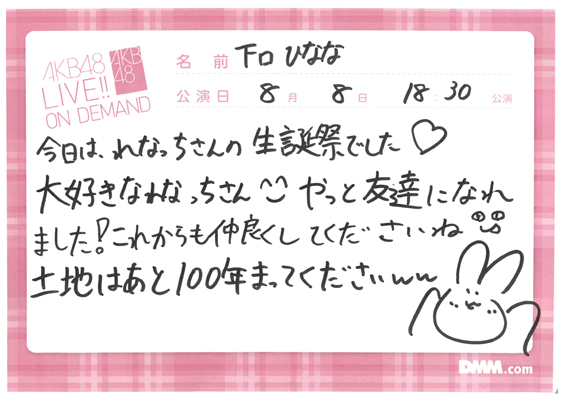 AKB48
LIVE!!
ON DEMAND
AKB
48
名前 下口ひなな
公演日 8月 8日 18:30 公演
今日は、れなっちさんの生誕祭でした♡
大好きなれなっちさん やっと友達になれ
ました!これからも仲良くしてくださいね
土地はあと100年まってくださいww
DMM.com